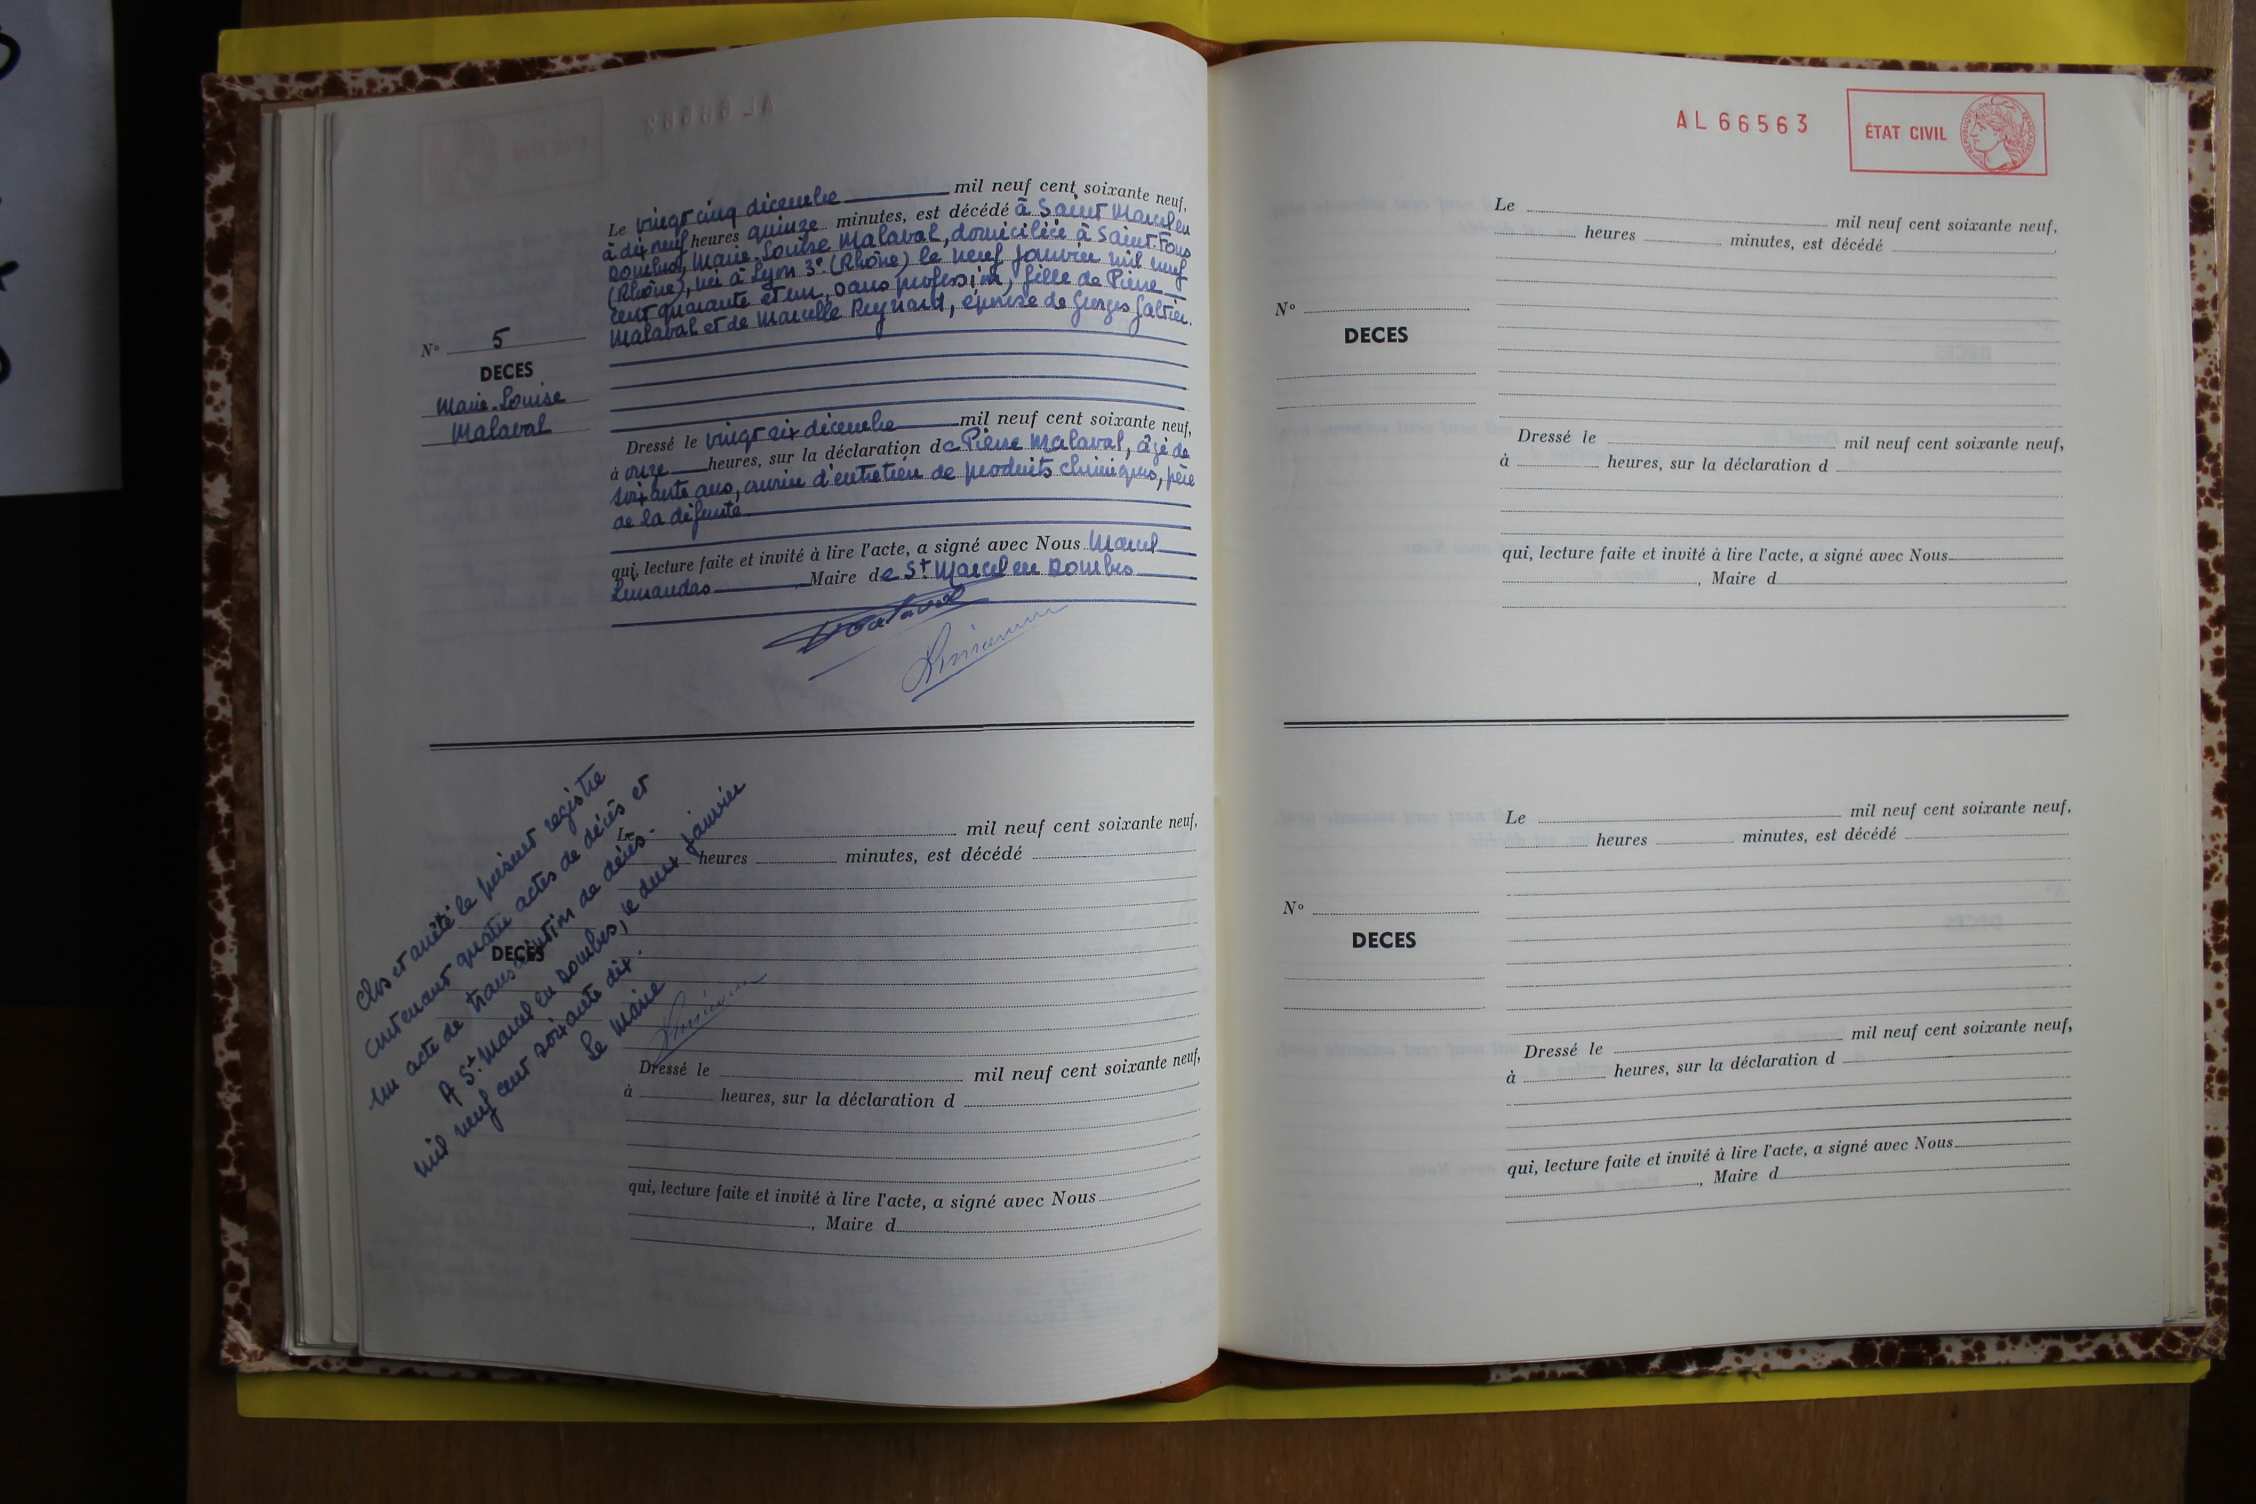 Le vingt cinq décembre mil neuf cent soixante neuf,
à dix neuf heures quinze minutes, est décédé à Saint Marcel en
Dombes, Marie-Louise Malaval, domiciliée à Saint-Fons
(Rhône), née à Lyon 3e (Rhône) le neuf janvier mil neuf
cent quarante et un, sans profession, fille de Pierre
Malaval et de Marcelle Reynard, épouse de Georges Galtier.
N° 5
DECES
Marie-Louise
Malaval
Dressé le vingt six décembre mil neuf cent soixante neuf,
à onze heures, sur la déclaration de Pierre Malaval, âgé de
soixante ans, ouvrier d'entretien de produits chimiques, père
de la défunte
qui, lecture faite et invité à lire l'acte, a signé avec Nous Marcel
Limandas Maire de St Marcel en Dombes
Malaval
Le mil neuf cent soixante neuf,
heures minutes, est décédé
DECES
Clos et arrêté le présent registre
contenant quatre actes de décès et
un acte de transcription de décès.
A St Marcel en Dombes, le deux janvier
mil neuf cent soixante dix.
Le Maire
Dressé le mil neuf cent soixante neuf,
à heures, sur la déclaration d
qui, lecture faite et invité à lire l'acte, a signé avec Nous
, Maire d
AL 66563
ÉTAT CIVIL
Le mil neuf cent soixante neuf,
heures minutes, est décédé
N°
DECES
Dressé le mil neuf cent soixante neuf,
à heures, sur la déclaration d
qui, lecture faite et invité à lire l'acte, a signé avec Nous
, Maire d
Le mil neuf cent soixante neuf,
heures minutes, est décédé
N°
DECES
Dressé le mil neuf cent soixante neuf,
à heures, sur la déclaration d
qui, lecture faite et invité à lire l'acte, a signé avec Nous
, Maire d